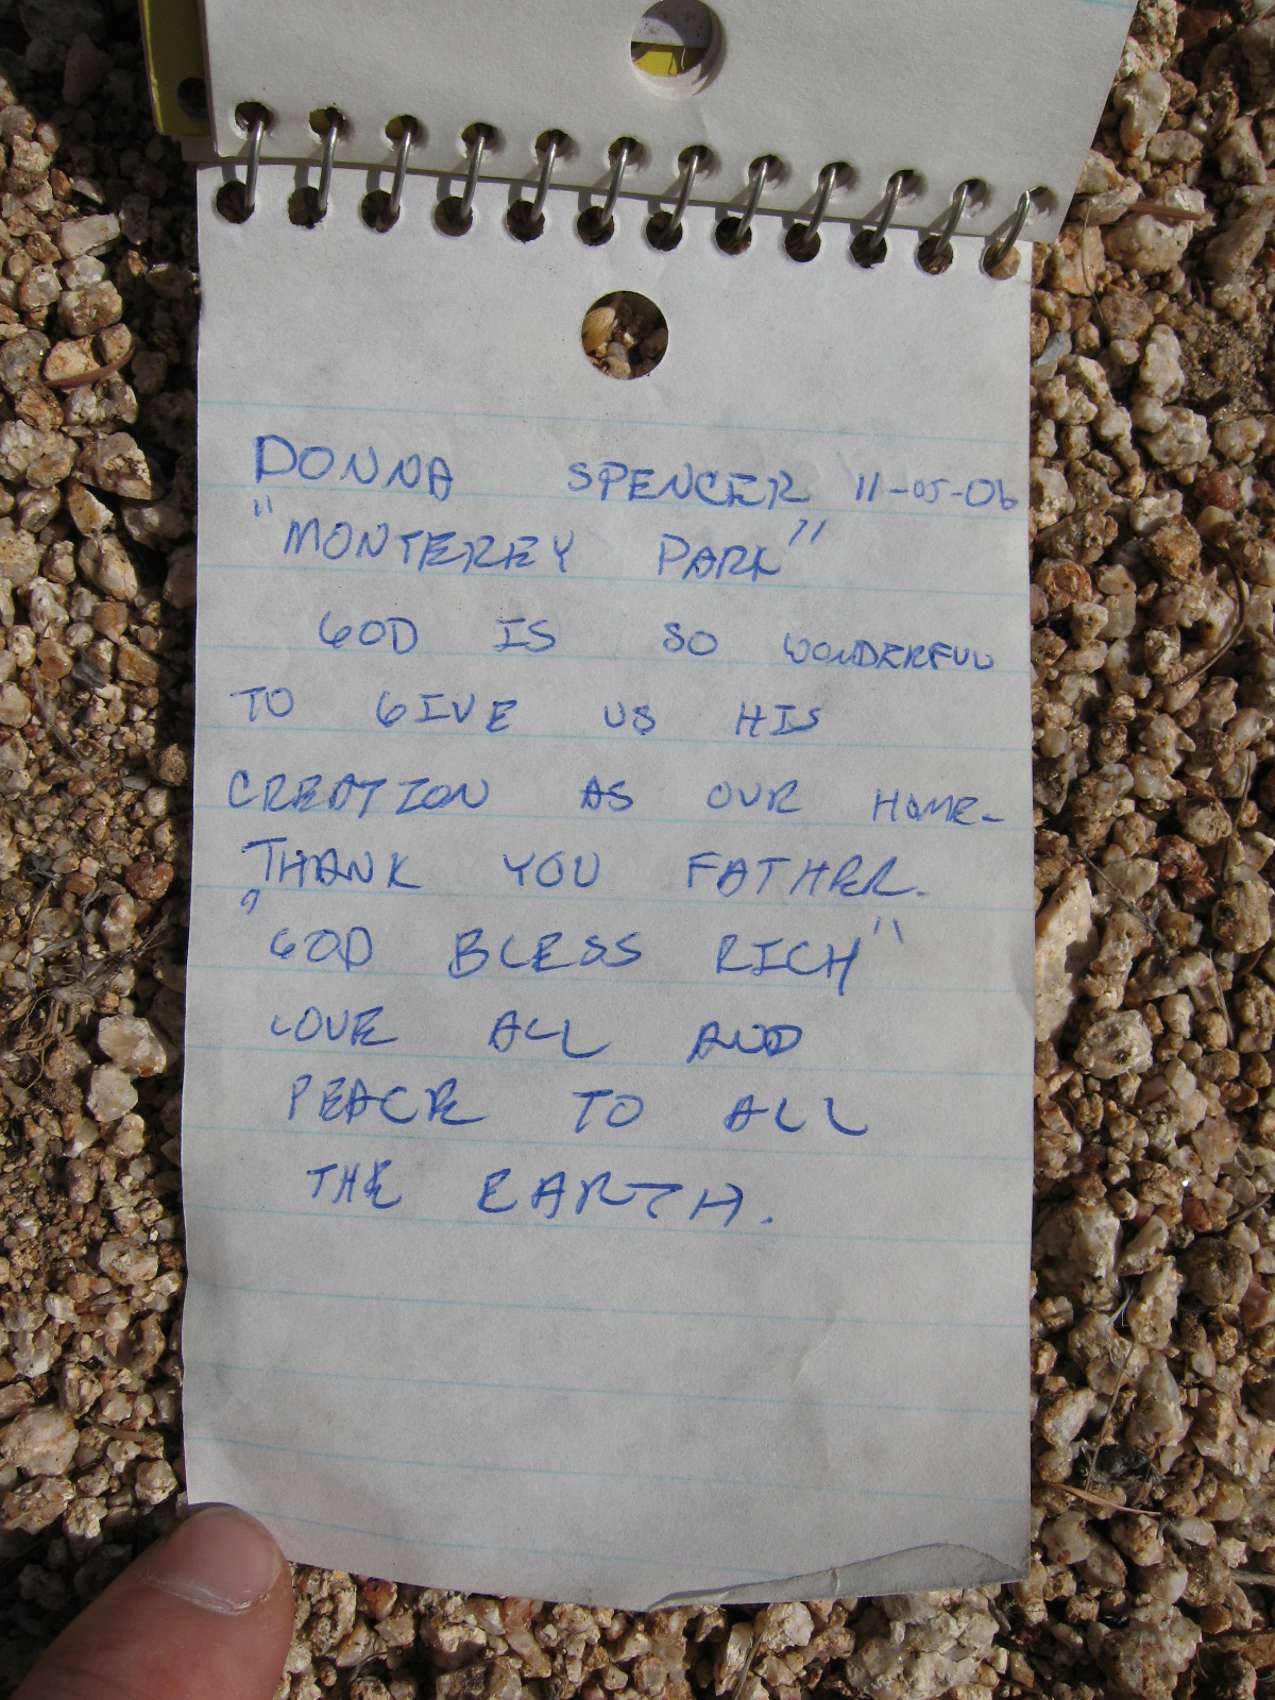 DONNA SPENCER 11-05-06
"MONTEREY PARK"
GOD IS SO WONDERFUL
TO GIVE US HIS
CREATION AS OUR HOME-
THANK YOU FATHER.
"GOD BLESS RICH"
LOVE ALL AND
PEACE TO ALL
THE EARTH.